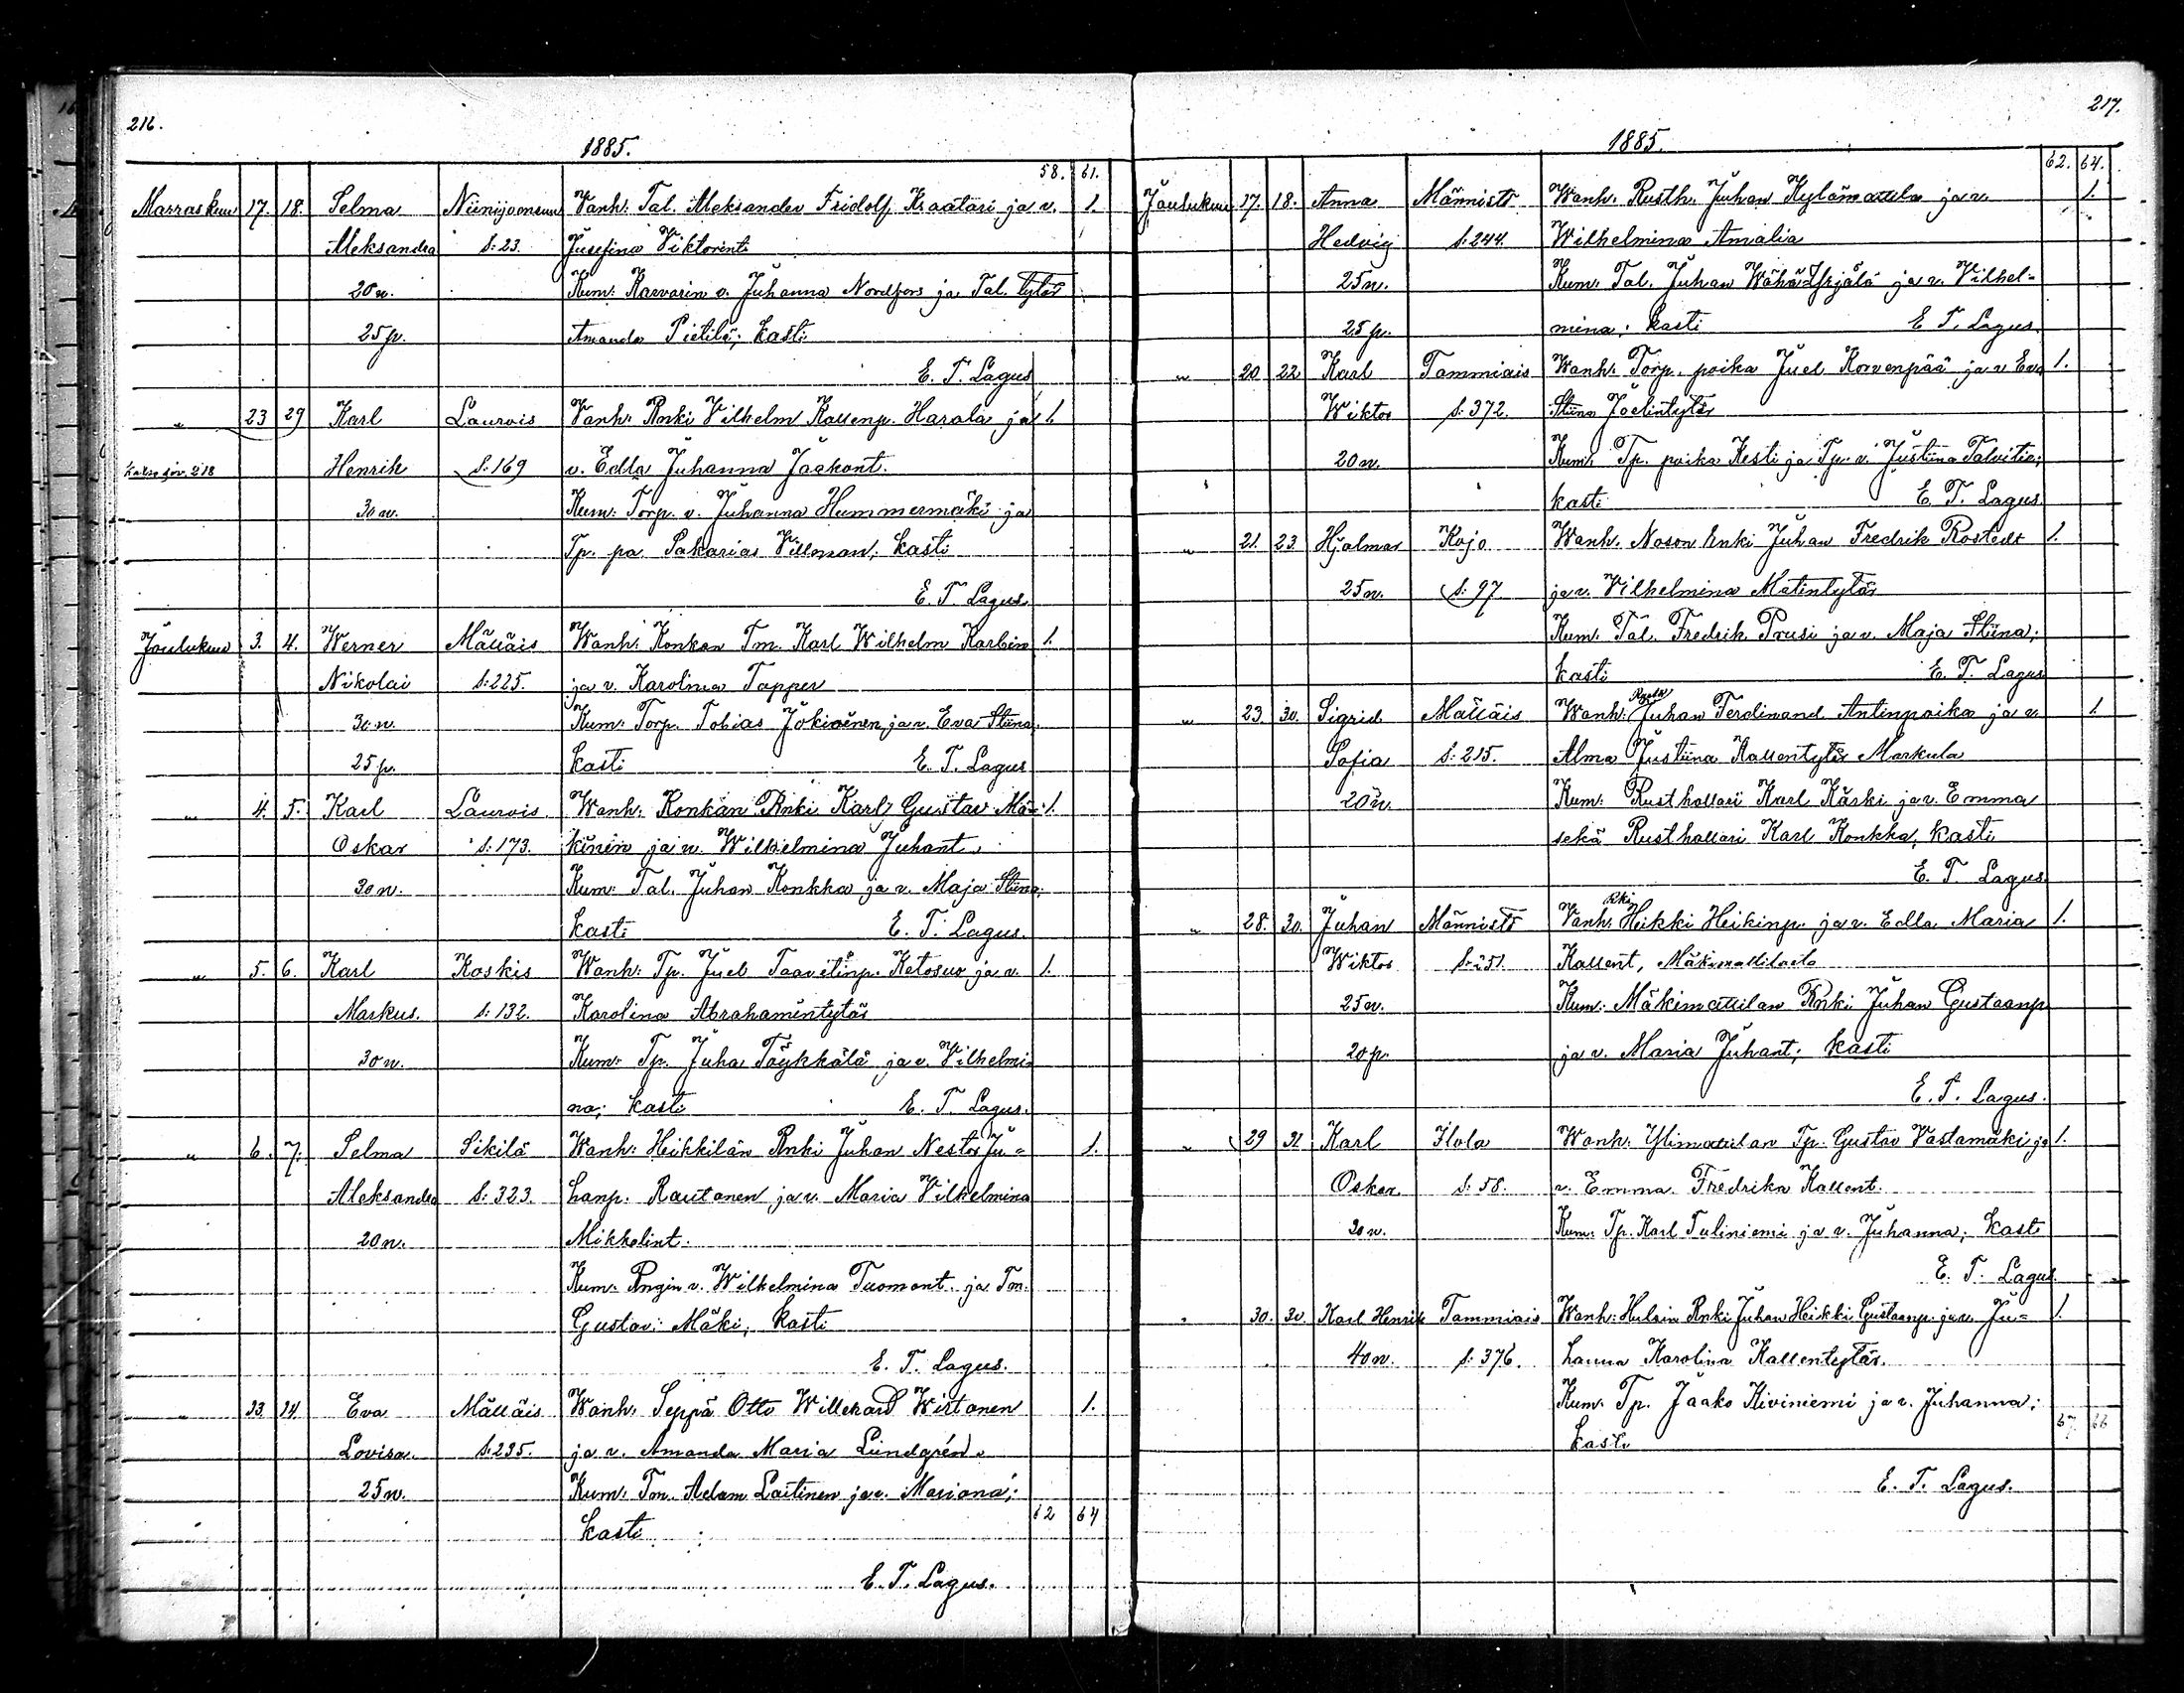 216.
1885.
58. 61.
Marraskuu 17. 18. Selma Niinijoensuu Vanh: Tal. Aleksander Fridolf Kraatäri ja v. 1.
Aleksandra S: 23. Josefina Viktorint:
20 v. Kum: Karvarin v. Juhanna Nordfors ja Tal. tytär
25 p. Amanda Pietilä; kasti
E. T. Lagus
" 23 29 Karl Lauvois Vanh: Rnki Vilhelm Kallenp. Harala ja 1.
Katso siv. 218 Henrik S: 169 v. Edla Juhanna Jaakont.
30 v. Kum: Torp. v. Juhanna Hummermäki ja
Tp. pa Sakarias Villman; kasti
E. T. Lagus
Joulukuu 3. 4. Werner Mälläis Wanh: Konkan Tm. Karl Wilhelm Karlsin 1.
Nikolai S: 225. ja v. Karolina Tapper
30 v. Kum: Torp. Tobias Jokioinen ja v. Eva Stiina;
25 p. kasti E. T. Lagus
" 4. 5. Karl Lauvois Wanh: Konkan Rnki Karl Gustav Mä- 1.
Oskar S: 173. kinen ja v. Wilhelmina Juhant.
30 v. Kum: Tal. Juhan Konkka ja v. Maja Stiina;
kasti E. T. Lagus.
" 5. 6. Karl Koskis Wanh: Tp. Juel Taavetinp. Ketosuo ja v. 1.
Markus. S: 132. Karolina Abrahamintytär
30 v. Kum: Tp. Juha Töykkälä ja v. Vilhelmi-
na; kasti E. T. Lagus.
" 6. 7. Selma Sikilä Wanh: Heikkilän Rnki Juhan Nestor Ju- 1.
Aleksandra S: 323. hanp. Rautanen ja v. Maria Vilhelmina
20 v. Mikkelint.
Kum: Rngin v. Wilhelmina Tuomont. ja Tm.
Gustav Mäki; kasti
E. T. Lagus.
" 13. 14. Eva Mälläis Wanh: Seppä Otto Willehard Wirtanen 1.
Lovisa. S: 235. ja v. Amanda Maria Lundgrén.
25 v. Kum: Tm. Adam Laitinen ja v. Mariana;
62 64
kasti
E. T. Lagus.
217.
1885.
62. 64.
Joulukuu 17. 18. Anna Männistö Wanh: Rusth. Juhan Kylämattila ja v. 1.
Hedvig S: 244. Wilhelmina Amalia
25 v. Kum: Tal. Juhan Wähä-Yrjälä ja v. Vilhel-
25 p. mina; kasti E. T. Lagus.
" 20 22 Karl Tammiais Wanh: Torp. poika Juel Korvenpää ja v Eva 1.
Wiktor S: 372. Stiina Joelintytär
20 v. Kum: Tp. poika Kesti ja Tp. v. Justiina Talvitie;
kasti E. T. Lagus.
" 21. 23. Hjalmar Kojo Wanh: Noson Rnki Juhan Fredrik Rostedt 1.
25 v. S: 97 ja v. Vilhelmina Matintytär
Kum: Tal. Fredrik Prusi ja v. Maja Stiina;
kasti E. T. Lagus
" 23. 30. Sigrid Mälläis Wanh: Rusth Juhan Ferdinand Antinpoika ja v. 1.
Sofia S: 215. Alma Justiina Kallentytär Markula
20 v. Kum: Rusthollari Karl Käski ja v. Emma
sekä Rusthollari Karl Konkka; kasti
E. T. Lagus
" 28. 30. Juhan Männistö Vanh: Rki Heikki Heikinp. ja v. Edla Maria 1.
Wiktor S: 251. Kallent, Mäkimattilasta
25 v. Kum: Mäkimattilan Rnki Juhan Gustaanp
20 p. ja v. Maria Juhant; kasti
E. T. Lagus.
" 29 31 Karl Ilola Wanh: Ylimattilan Tp. Gustav Vastamäki ja 1.
Oskar S: 58. v. Emma Fredrika Kallent.
20 v. Kum: Tp. Karl Tuliniemi ja v. Juhanna; kasti
E. T. Lagus.
" 30. 30. Karl Henrik Tammiais Wanh: Rnki Juhan Heikki Gustaanp. ja v. Ju- 1.
40 v. S: 376. hanna Karolina Kallentytär.
Kum: Tp. Jaako Kiviniemi ja v. Juhanna;
67 66
kasti
E. T. Lagus.